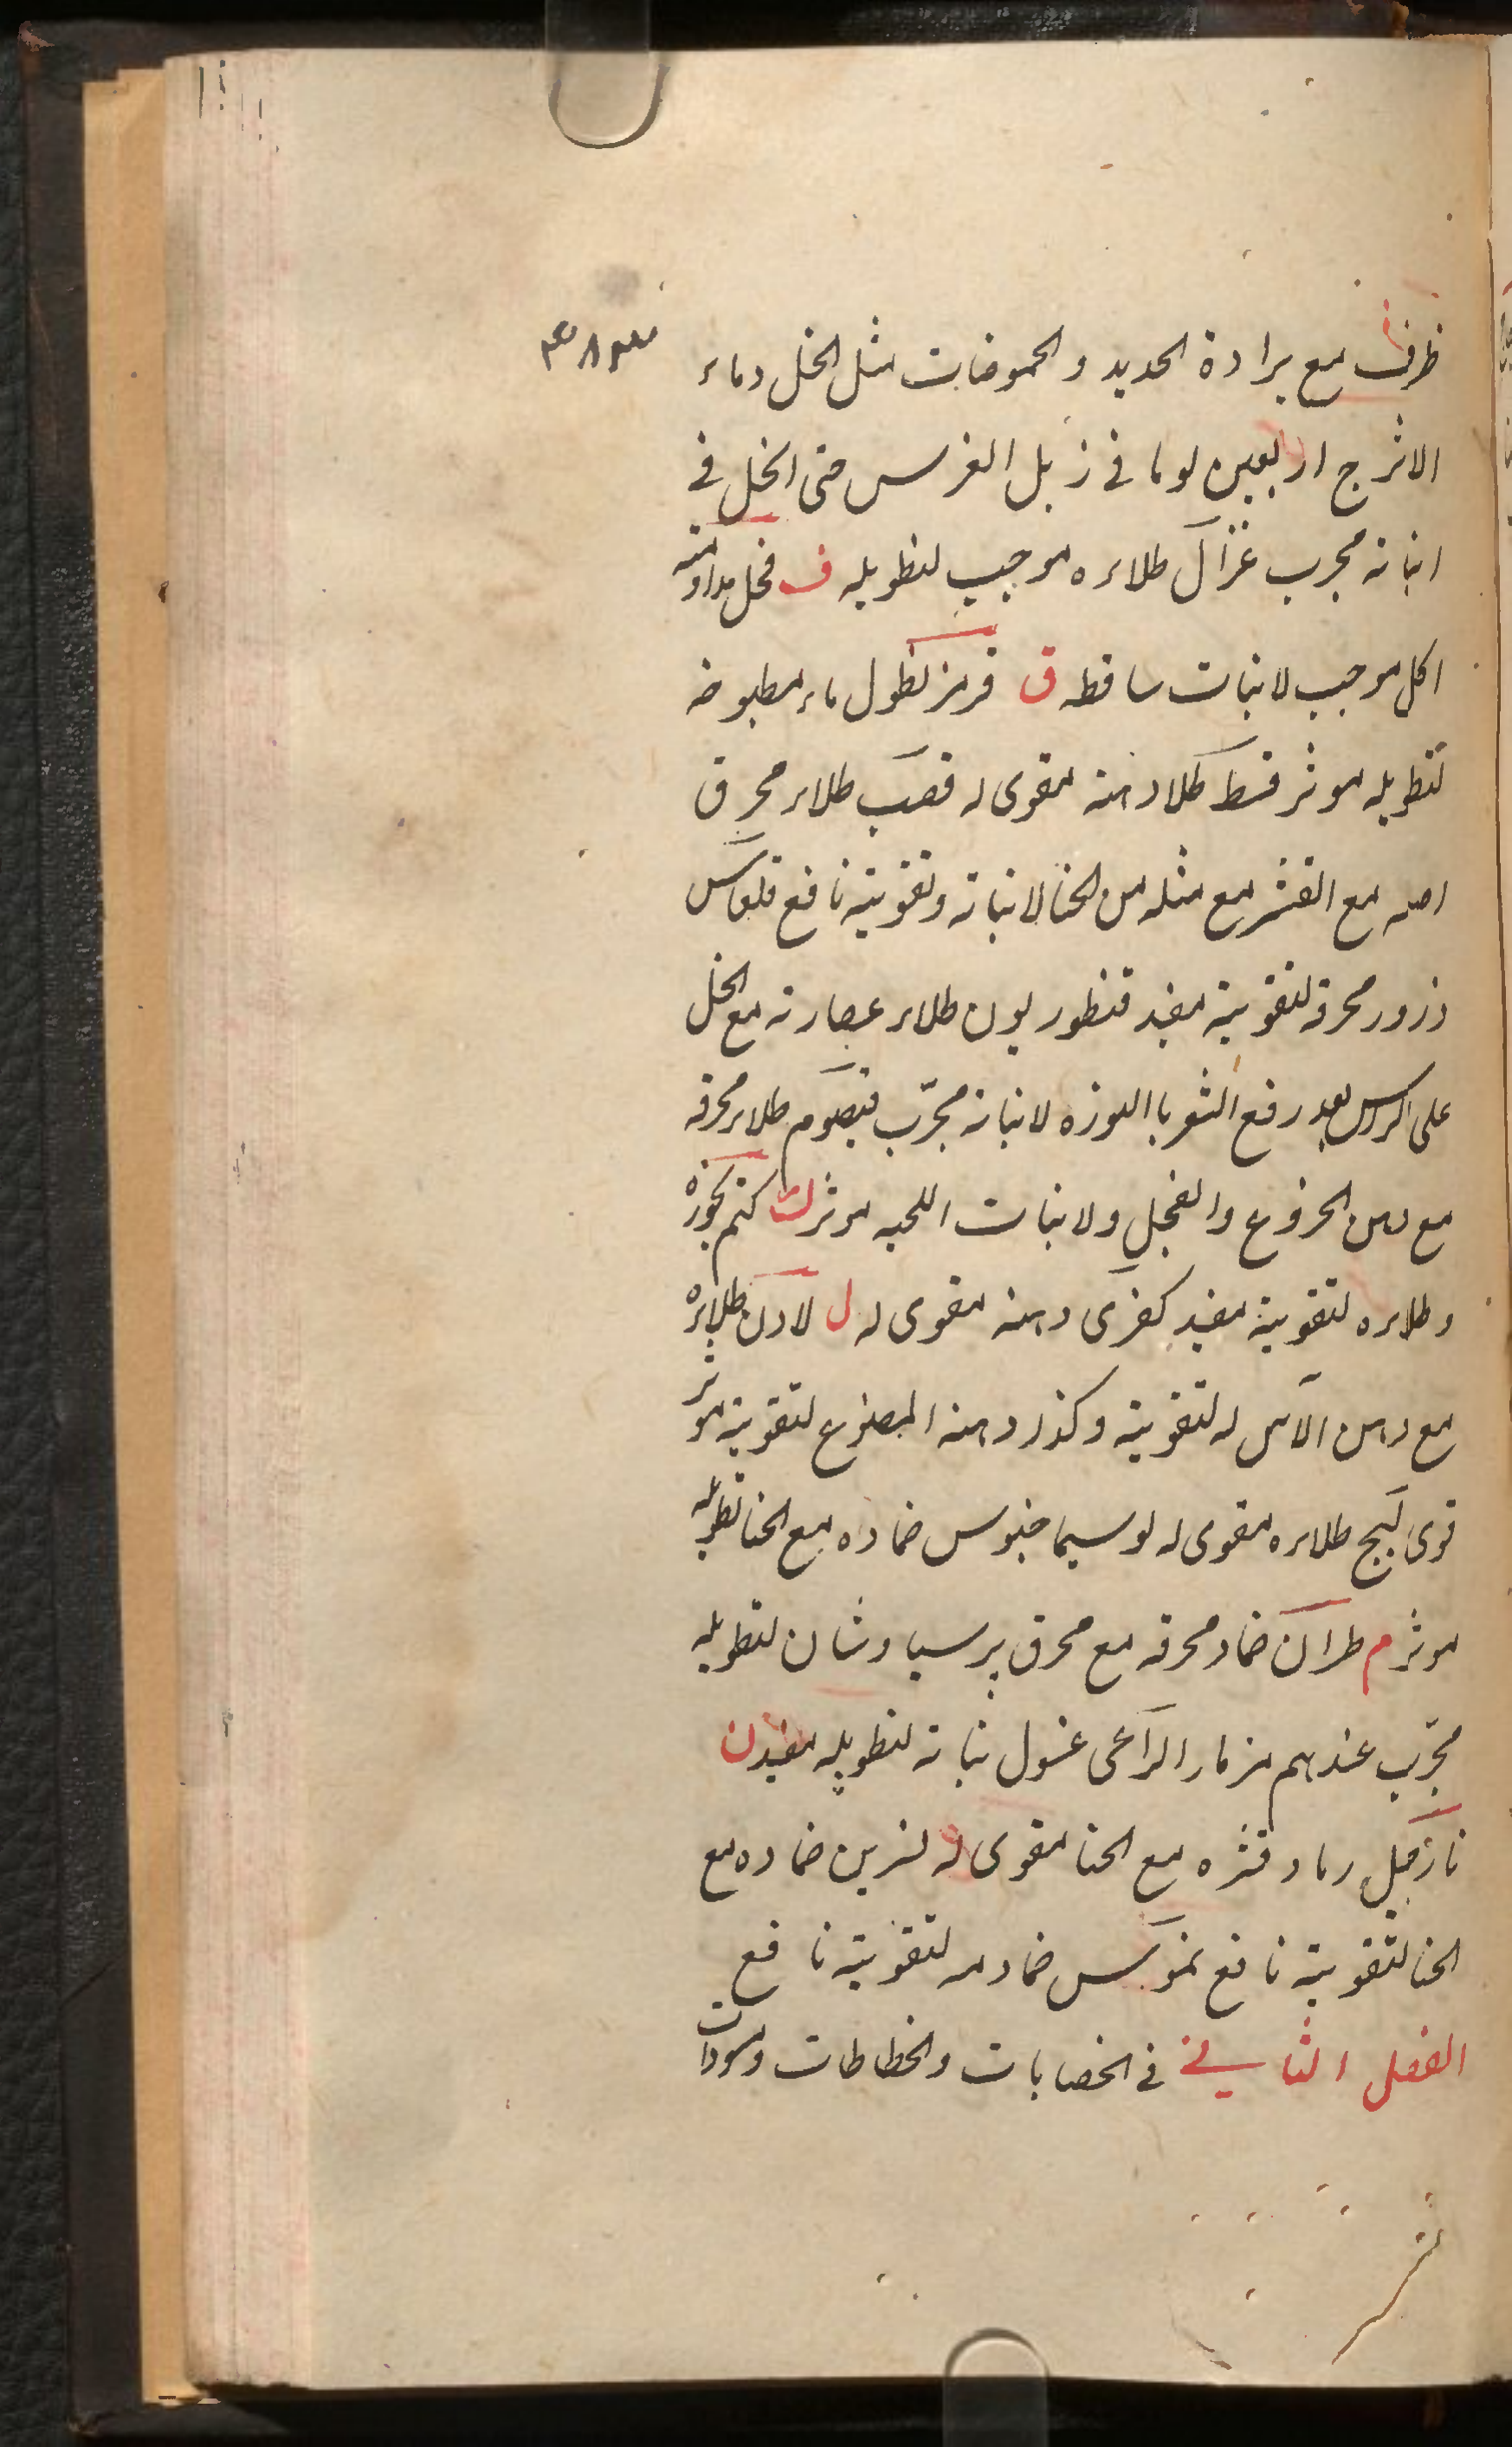 ظرف مع برادة الحديد والحموضات مثل الخل وماء
الاترج اربعين يوما فى زبل الفرس حتى انحل فى
انباته مجرب غزال طلاءه موجب لتطويله ف فجل مداومته
اكل موجب لانبات ساقطه ق قرمز نطول ماء مطبوخه
لتطويله موثر قسط طلاء دهنه مقوى له قصب طلاء محرق
اصله مع القشر مع مثله من الحنا لانباته وتقويته نافع قلقاس
ذرور محرقه لتقويته مفيد قنطوريون طلاء عصارته مع الخل
على الراس بعد رفع الشعر باالنوره لانباته مجرّب قيصوم طلاء محرقه
مع دهن الخروع والفجل ولانبات اللحيه موثر ك كتم بخوره
وطلاءه لتقويته مفيد كفرى دهنه مقوى له ل لادن طلاءه
مع دهن الآس له لتقويته وكذا دهنه المصنوع لتقويته موثر
قوى لبخ طلاءه مقوى له لوسيماخيوس ضماده مع الحنا لتطويله
موثر م مران ضماد محرقه مع محرق پرسیاوشان لتطويله
مجرّب عندهم مزمار الراعى غسول نباته لتطويله مفيد ن
نارجيل رماد قشره مع الحنا مقوى له نسرين ضماده مع
الحنا لتقويته نافع نمو ضماد لتقويته نافع
الفصل الثانى فى الخضابات والخطاطات ومسودات